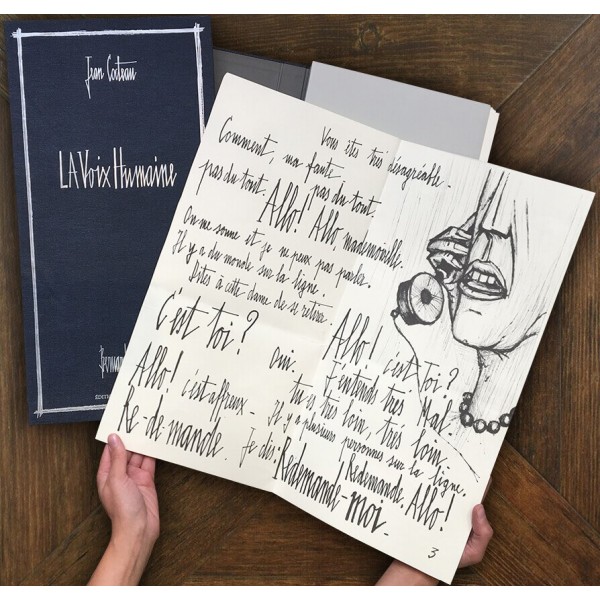 Jean Cocteau
LA Voix Humaine
Bernard
ÉDIT
Vous êtes très désagréable.
Comment, ma faute,
pas du tout. pas du tout.
Allo! Allo mademoiselle.
On me sonne et je ne peux pas parler.
Il y a du monde sur la ligne.
Dites à cette dame de se retirer.
C'est toi?
Allo!
c'est affreux_
Re-demande. Je dis:
Allo!
oui. c'est Toi?
J'entends très Mal.
tu es très loin, très loin.
Il y a plusieurs personnes sur la ligne.
Redemande. Allo!
Redemande-moi.
3